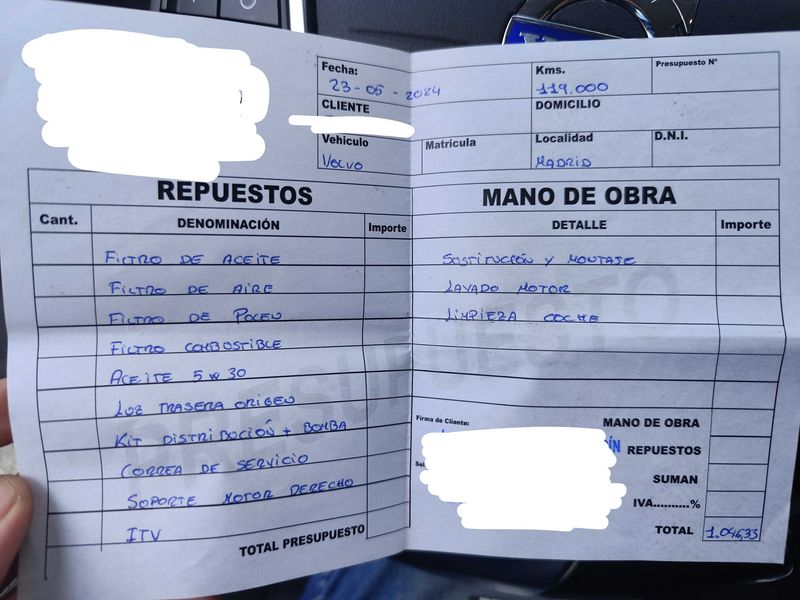 Fecha:
23-05-2024
Kms.
119.000
Presupuesto Nº
CLIENTE
DOMICILIO
Vehiculo
Volvo
Matricula
Localidad
MADRID
D.N.I.
REPUESTOS
Cant.
DENOMINACIÓN
Importe
FILTRO DE ACEITE
FILTRO DE AIRE
FILTRO DE POLEN
FILTRO COMBOSTIBLE
ACEITE 5W30
LUZ TRASERA ORIGEN
KIT DISTRIBOCIÓN + BOMBA
CORREA DE SERVICIO
SOPORTE MOTOR DERECHO
ITV
TOTAL PRESUPUESTO
MANO DE OBRA
DETALLE
Importe
SOSTITUCIÓN Y MONTAJE
LAVADO MOTOR
LIMPIEZA COCHE
PRESUPUESTO
Firma de Cliente:
MANO DE OBRA
REPUESTOS
SUMAN
IVA..........%
TOTAL
1.046,33